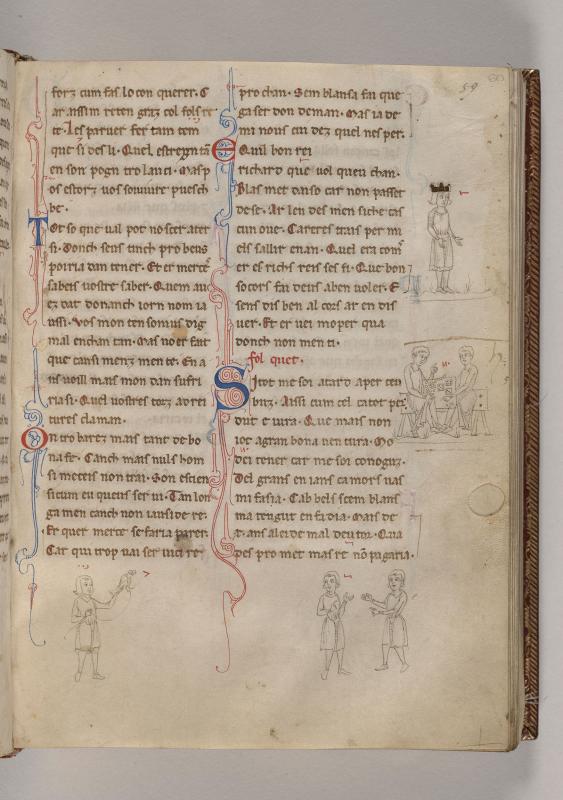 59
60
forz cum fas lo con querer. C
ar aissim reten graz col fols re
te. Les par uer fer tam tem
que si des li. Quel, estreingn
en son poign tro lauci. Mas p
os estorz uos souuire puesch
be.
Tot so que ual pot noscer ater
si. Donch sens tinch pro bens
poiria dan tener. Et er merce
sabeis uostre saber. Quem au
ez dat don anch iorn nom ia
ussi. Vos mon ten som uis dig
mal enchan tan. Mas noer fait
que causi menz men te. En a
iis uoill mais mon dan sufri
ria si. Quel uostres torz ad rei
tures claman.
On tro barez mais tant de bo
na fe. Canch mais nuls hom
si meteis non trai. Son escien
sitcum eu queus ser ui. Tan lon
ga men canch non iausi de re.
Er quer merce se faria parer.
Car qui trop uai ser uici re
pro chan. Sem blansa fai que
ga ser don deman. Mas ia de
mi nous cui dez quel nes per.
E quil bon rei
richard que uol queu chan.
Blas met dan so car non passet
de se. Ar len des men siche cas
cun oue. Careres trais per mi
eis sallir enan. Quel era com
er es richs reis ses fi. Que bon
socors fai deus aben uoler. E
sens dis ben al cors ar en dis
uer. Et er uei mo per qua
donch non men ti.
fol quet.
Sitot me soi atard aper ceu
buz. Aissi cum cel catot per
dut e iura. Que mais non
ioc agran bona uen tura. Mo
dei tener car me soi conoguz.
Del grans en ians camors uas
mi fasia. Cab bels scem blans
ma tengut en fadia. Mais de
.x. ans alei de mal deutor. Qua
des pro met mas re non pagaria.